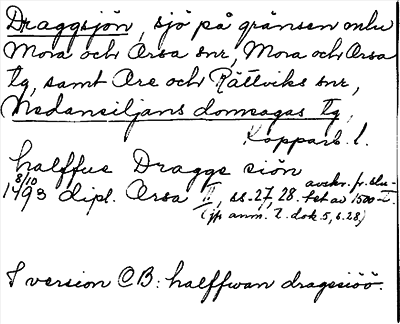 Draggsjön, sjö på gränsen mlu
Mora och Orsa snr, Mora och Orsa
tg, samt Ore och Rättviks snr,
Nedansiljans domsagas tg,
Kopparb. l.
halffue Draggs siön
8/10 1493 dipl. Orsa II, ss. 27, 28. avskr. fr. slu-
tet av 1500-t.
(jfr anm. t. dok. 5, s. 28)
I version CB: halffwan dragsiöö.